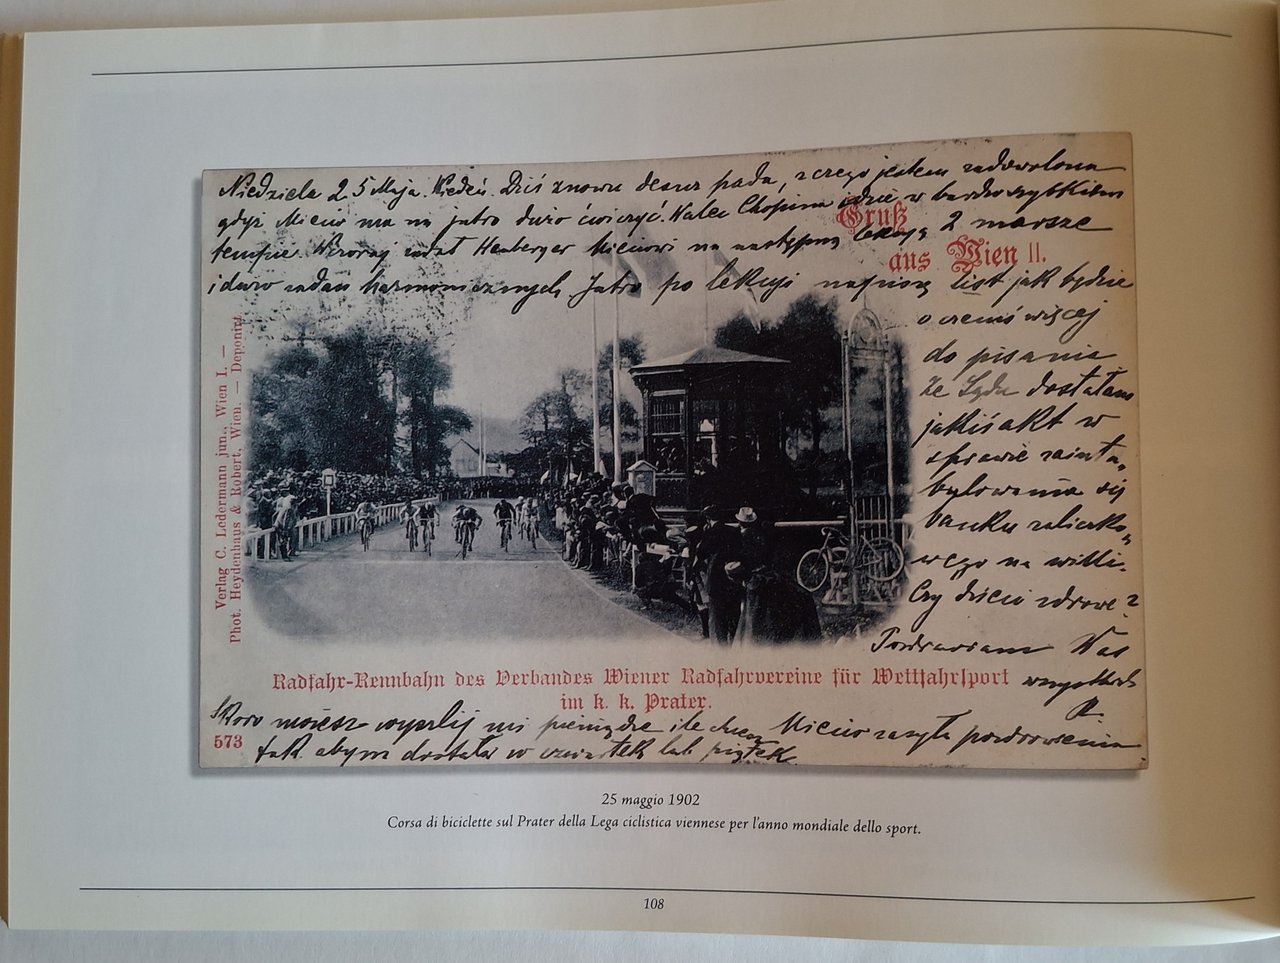 Niedziela 25 Maja. Wiedeń. Dziś znowu deszcz pada, z czego jestem zadowolona
gdyż Miecio ma na jutro dużo ćwiczyć. Walec Chopina idzie w bardzo szybkiem
tempie. Wczoraj zadał Heuberger Mieciowi na następną lekcyę 2 marsze
i dużo zadań harmonicznych. Jutro po lekcyi napiszę list jak będzie
o czemś więcej
do pisania
Że Sądu dostałam
jakiś akt w
sprawie zainta-
bylowania się
banku zaliczko-
wego na willi.
Czy dzieci zdrowe?
Pozdrawiam Was
wszystkich
R.
Skoro możesz wyszlij mi pieniądze ile chcesz Miecio zasyła pozdrowienia
tak abym dostała w czwartek lub piątek.
Gruß
aus Wien II.
Verlag C. Ledermann jun., Wien I. —
Phot. Heydenhaus & Robert, Wien. — Deponirt.
Radfahr-Rennbahn des Verbandes Wiener Radfahrvereine für Wettfahrsport
im k. k. Prater.
573
25 maggio 1902
Corsa di biciclette sul Prater della Lega ciclistica viennese per l'anno mondiale dello sport.
108